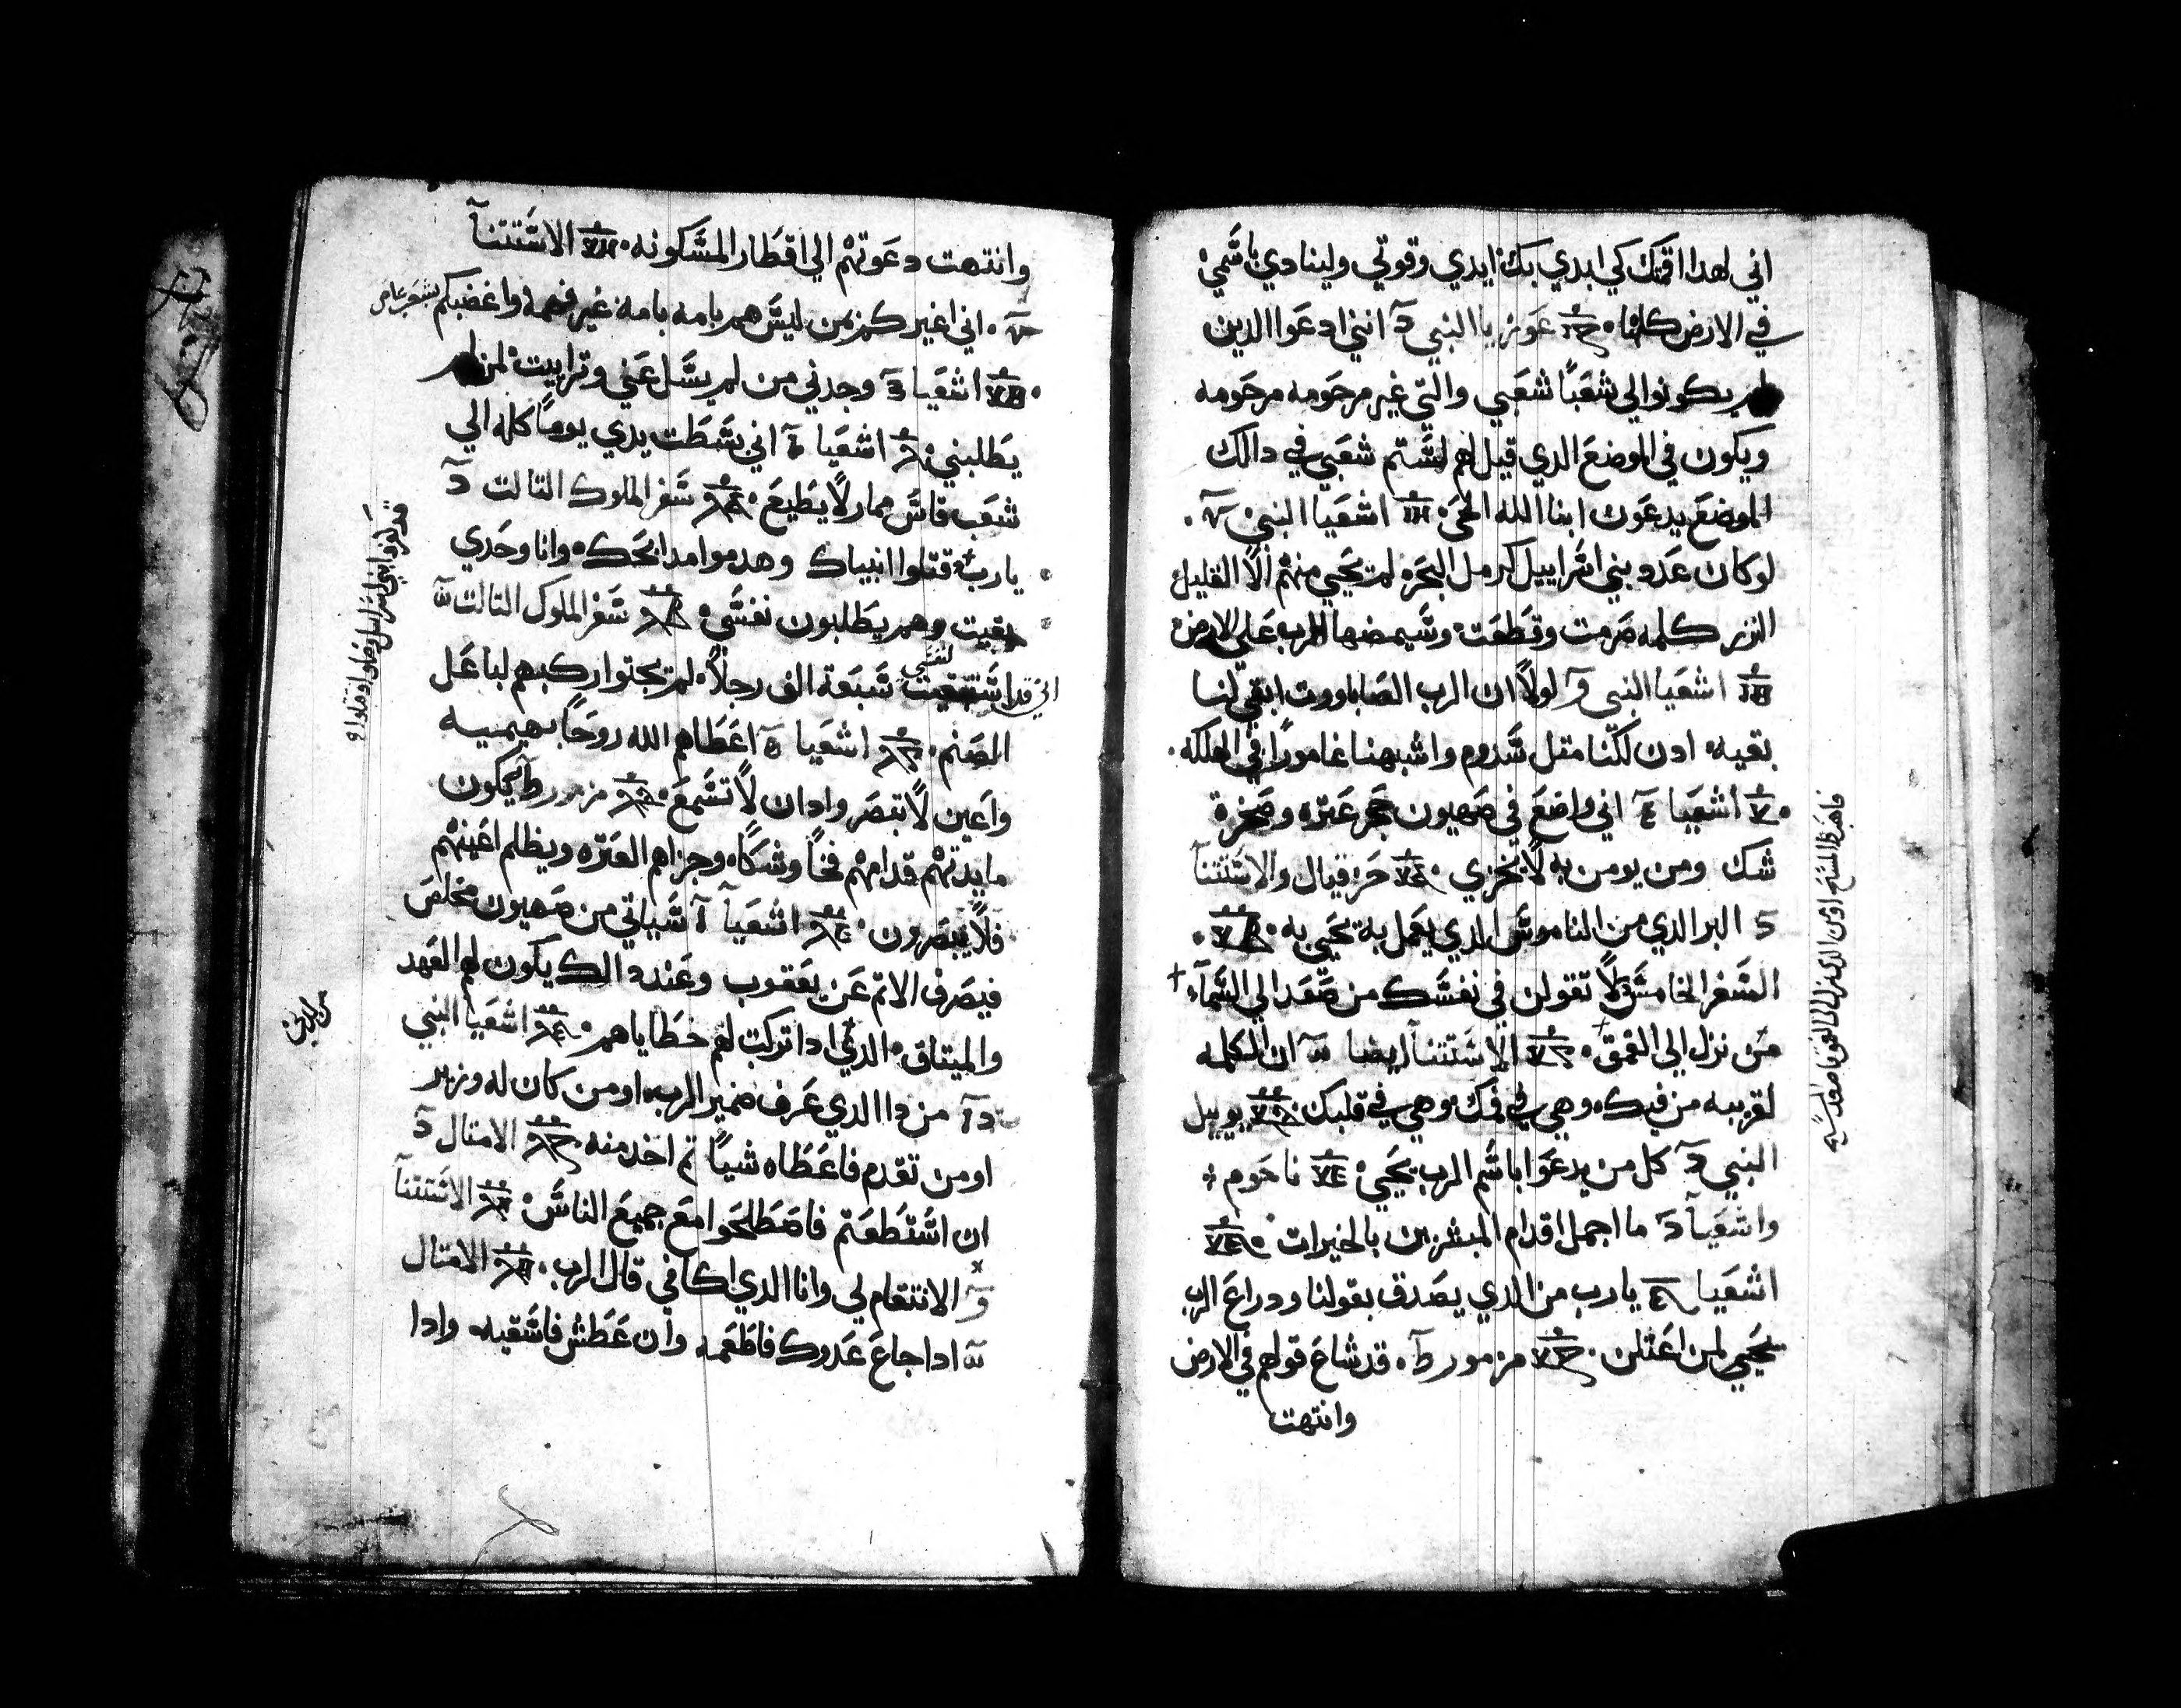 اني لهدا اقمتك كي ابدي بك ايدي وقوتي ولينادي باسمي
في الارض كلها عوزيا النبي انني ادعوا الدين
لم يكونوا لي شعبا شعبي والتي غير مرحومه مرحومه
ويكون في الموضع الدي قيل لهم لستم شعبي في دالك
الموضع يدعون ابنا الله الحي اشعيا النبي
لو كان عدد بني اسراييل كرمل البحر لم تحيي منهم الا القليل
النزر كلمه صرمت وقطعت وسيمضها الرب علي الارض
اشعيا النبي لولا ان الرب الصاباووت ابقي لنا
بقيه ادن لكنا متل سدوم واشبهنا غامورا في الهلكه
اشعيا اني واضع في صهيون حجر عتره وصخرة
شك ومن يومن به لا يخزي حزقيال والاستتنا
البر الدي من الناموس الدي يعمل به يحيي به
السفر الخامس لا تقولن في نفسك من صعد الي السماء
من نزل الي العمق الاستتنا ايضا ان الكلمه
لقريبه من فيك وهي في فمك وهي في قلبك يوييل
النبي كل من يدعوا باسم الرب يحيي ناحوم
واشعيا ما اجمل اقدام المبشرين بالخيرات
اشعيا يارب من الدي يصدق بقولنا ودراع الرب
لمن اعتلن مزمور قد شاع قولهم في الارض
وانتهت
وانتهت دعوتهم الي اقطار المسكونه الاستتنا
اني اغيركم بمن ليس هم بامه بامه غير فهمه واغضبكم
اشعيا وجدني من لم يسل عني وتراييت لمن لم
يطلبني اشعيا اني بسطت يدي يوما كله الي
شعب قاس ممار لا يطيع سفر الملوك التالت
يارب قتلوا انبياك وهدموا مدابحك وانا وحدي
بقيت وهم يطلبون نفسي سفر الملوك التالت
اني قد استبقيت لنفسي سبعة الف رجلا لم يجتوا ركبهم لباعل
الصنم اشعيا اعطاهم الله روحا بهيميه
واعين لا تبصر وادان لا تسمع مزمور يكون
مايدتهم قدامهم فخا وشكا وجزاهم العتره ويظلم اعينهم
فلا يبصرون اشعيا سياتي من صهيون مخلص
فيصرف الاتم عن يعقوب وعند دالك يكون لهم العهد
والميتاق الدي ادا تركت لهم خطاياهم اشعيا النبي
من دا الدي عرف ضمير الرب اومن كان له وزير
اومن تقدم فاعطاه شيا تم اخد منه الامتال
ان استطعتم فاصطلحوا مع جميع الناس الاستتنا
الانتقام لي وانا الدي اكافي قال الرب الامتال
ادا جاع عدوك فاطعمه وان عطش فاسقيه وادا